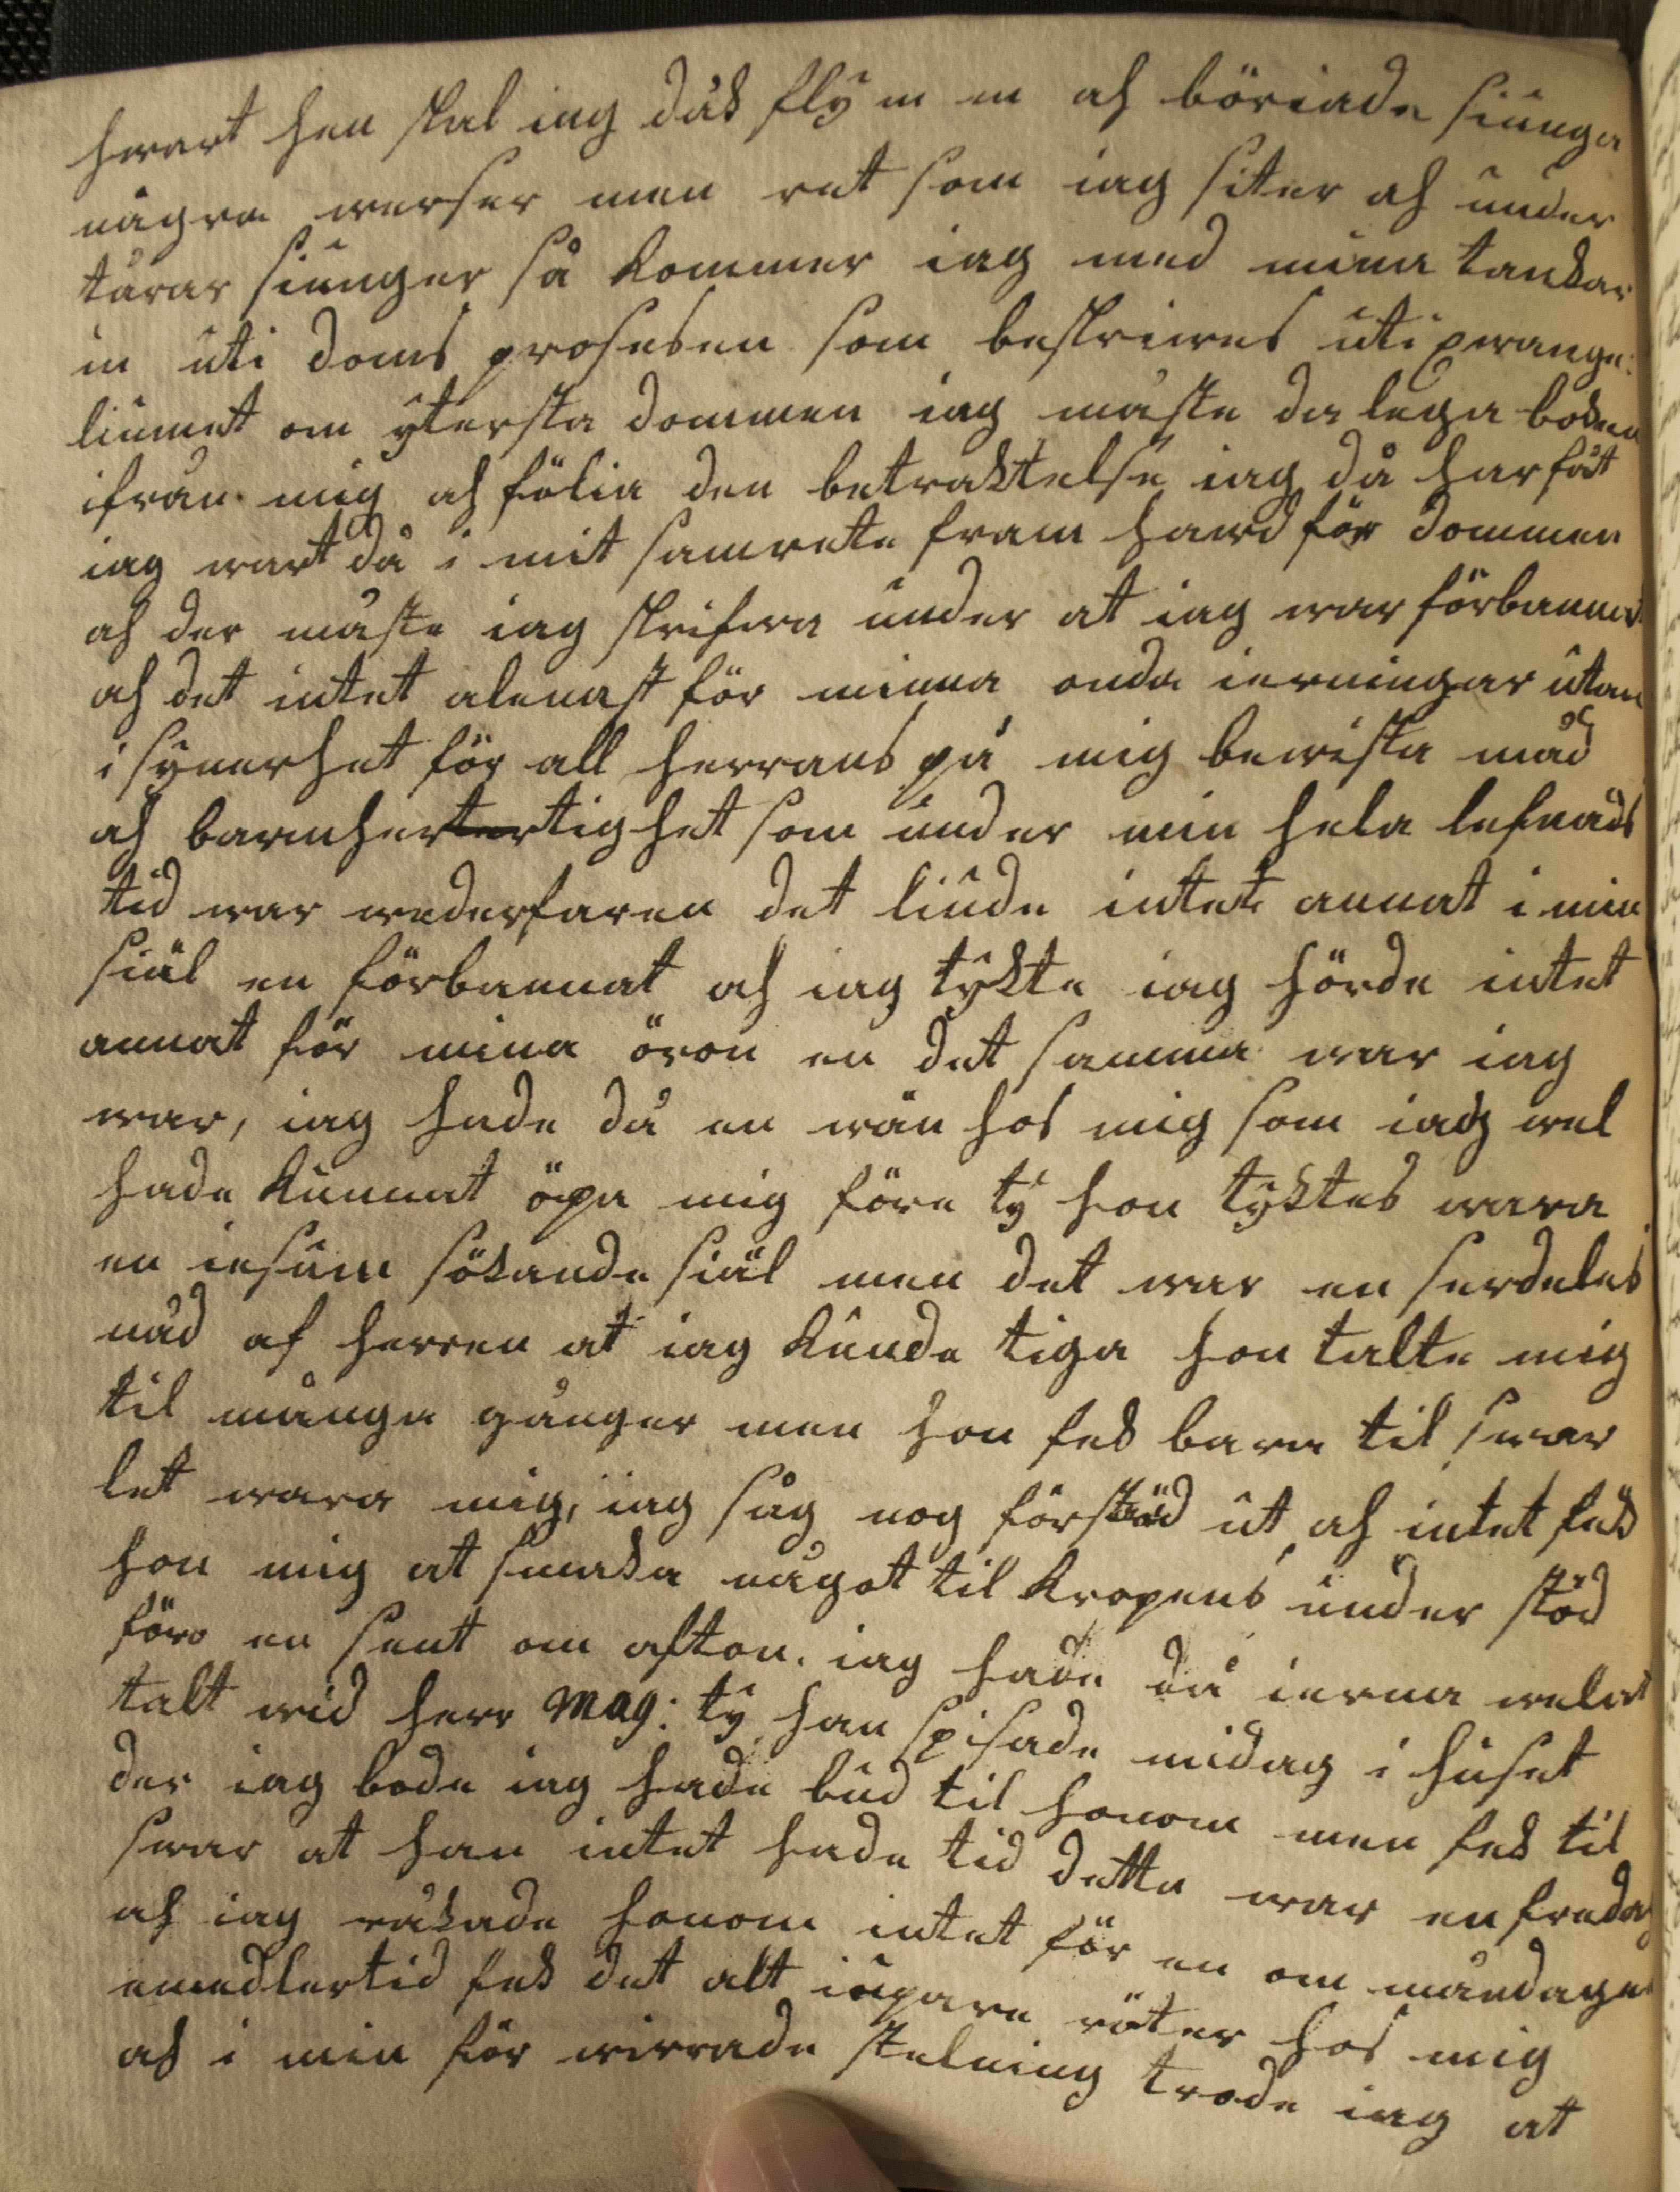 hwart hen skal iag dåk flÿ m m ah böriade siunga
några werser men ret som iag siter ah under
tårar siunger så kommer iag med mina tankar
in uti doms prosesen som beskriwes uti ewange:
liumet om ÿtersta dommen iag måste da lega boken
ifrån mig ah fölia den betraktelse iag då har fåt
iag wart då i mit samwete fram hawd för dommen
ah der måste iag skrifwa under at iag war förbannad
ah det intet alenast för minna onda ierningar utan
i synerhet för all herrans på mig bewista nåd
ah barmhertertighet som under min hela lefnads
tid war wederfaren det liude intet annat i min
siäl en förbannat ah iag tÿkte iag hörde intet
annat för mina öron en det samma war iag
war, iag hade då en wän hos mig som iag wel
hade kunnat öpa mig före tÿ hon tÿktes wara
en iesum sökande siäl men det war en serdeles
nåd af herren at iag kunde tiga hon talte mig
til många gånger men hon fek bara til swar
let wara mig, iag såg nog förstöd ut ah intet fek
hon mig at smaka något til kropens under stöd
före en sent om afton. iag hade då ierna welat
talt wid herr Mag: tÿ han spisade midag i huset
der iag bode iag hade bud til honom men fek til
swar at han intet hade tid detta war en fredag
ah iag råkade honom intet för en om måndagen
emedlertid fek det alt iupare röter hos mig
ah i min för wirrade stelning trode iag at